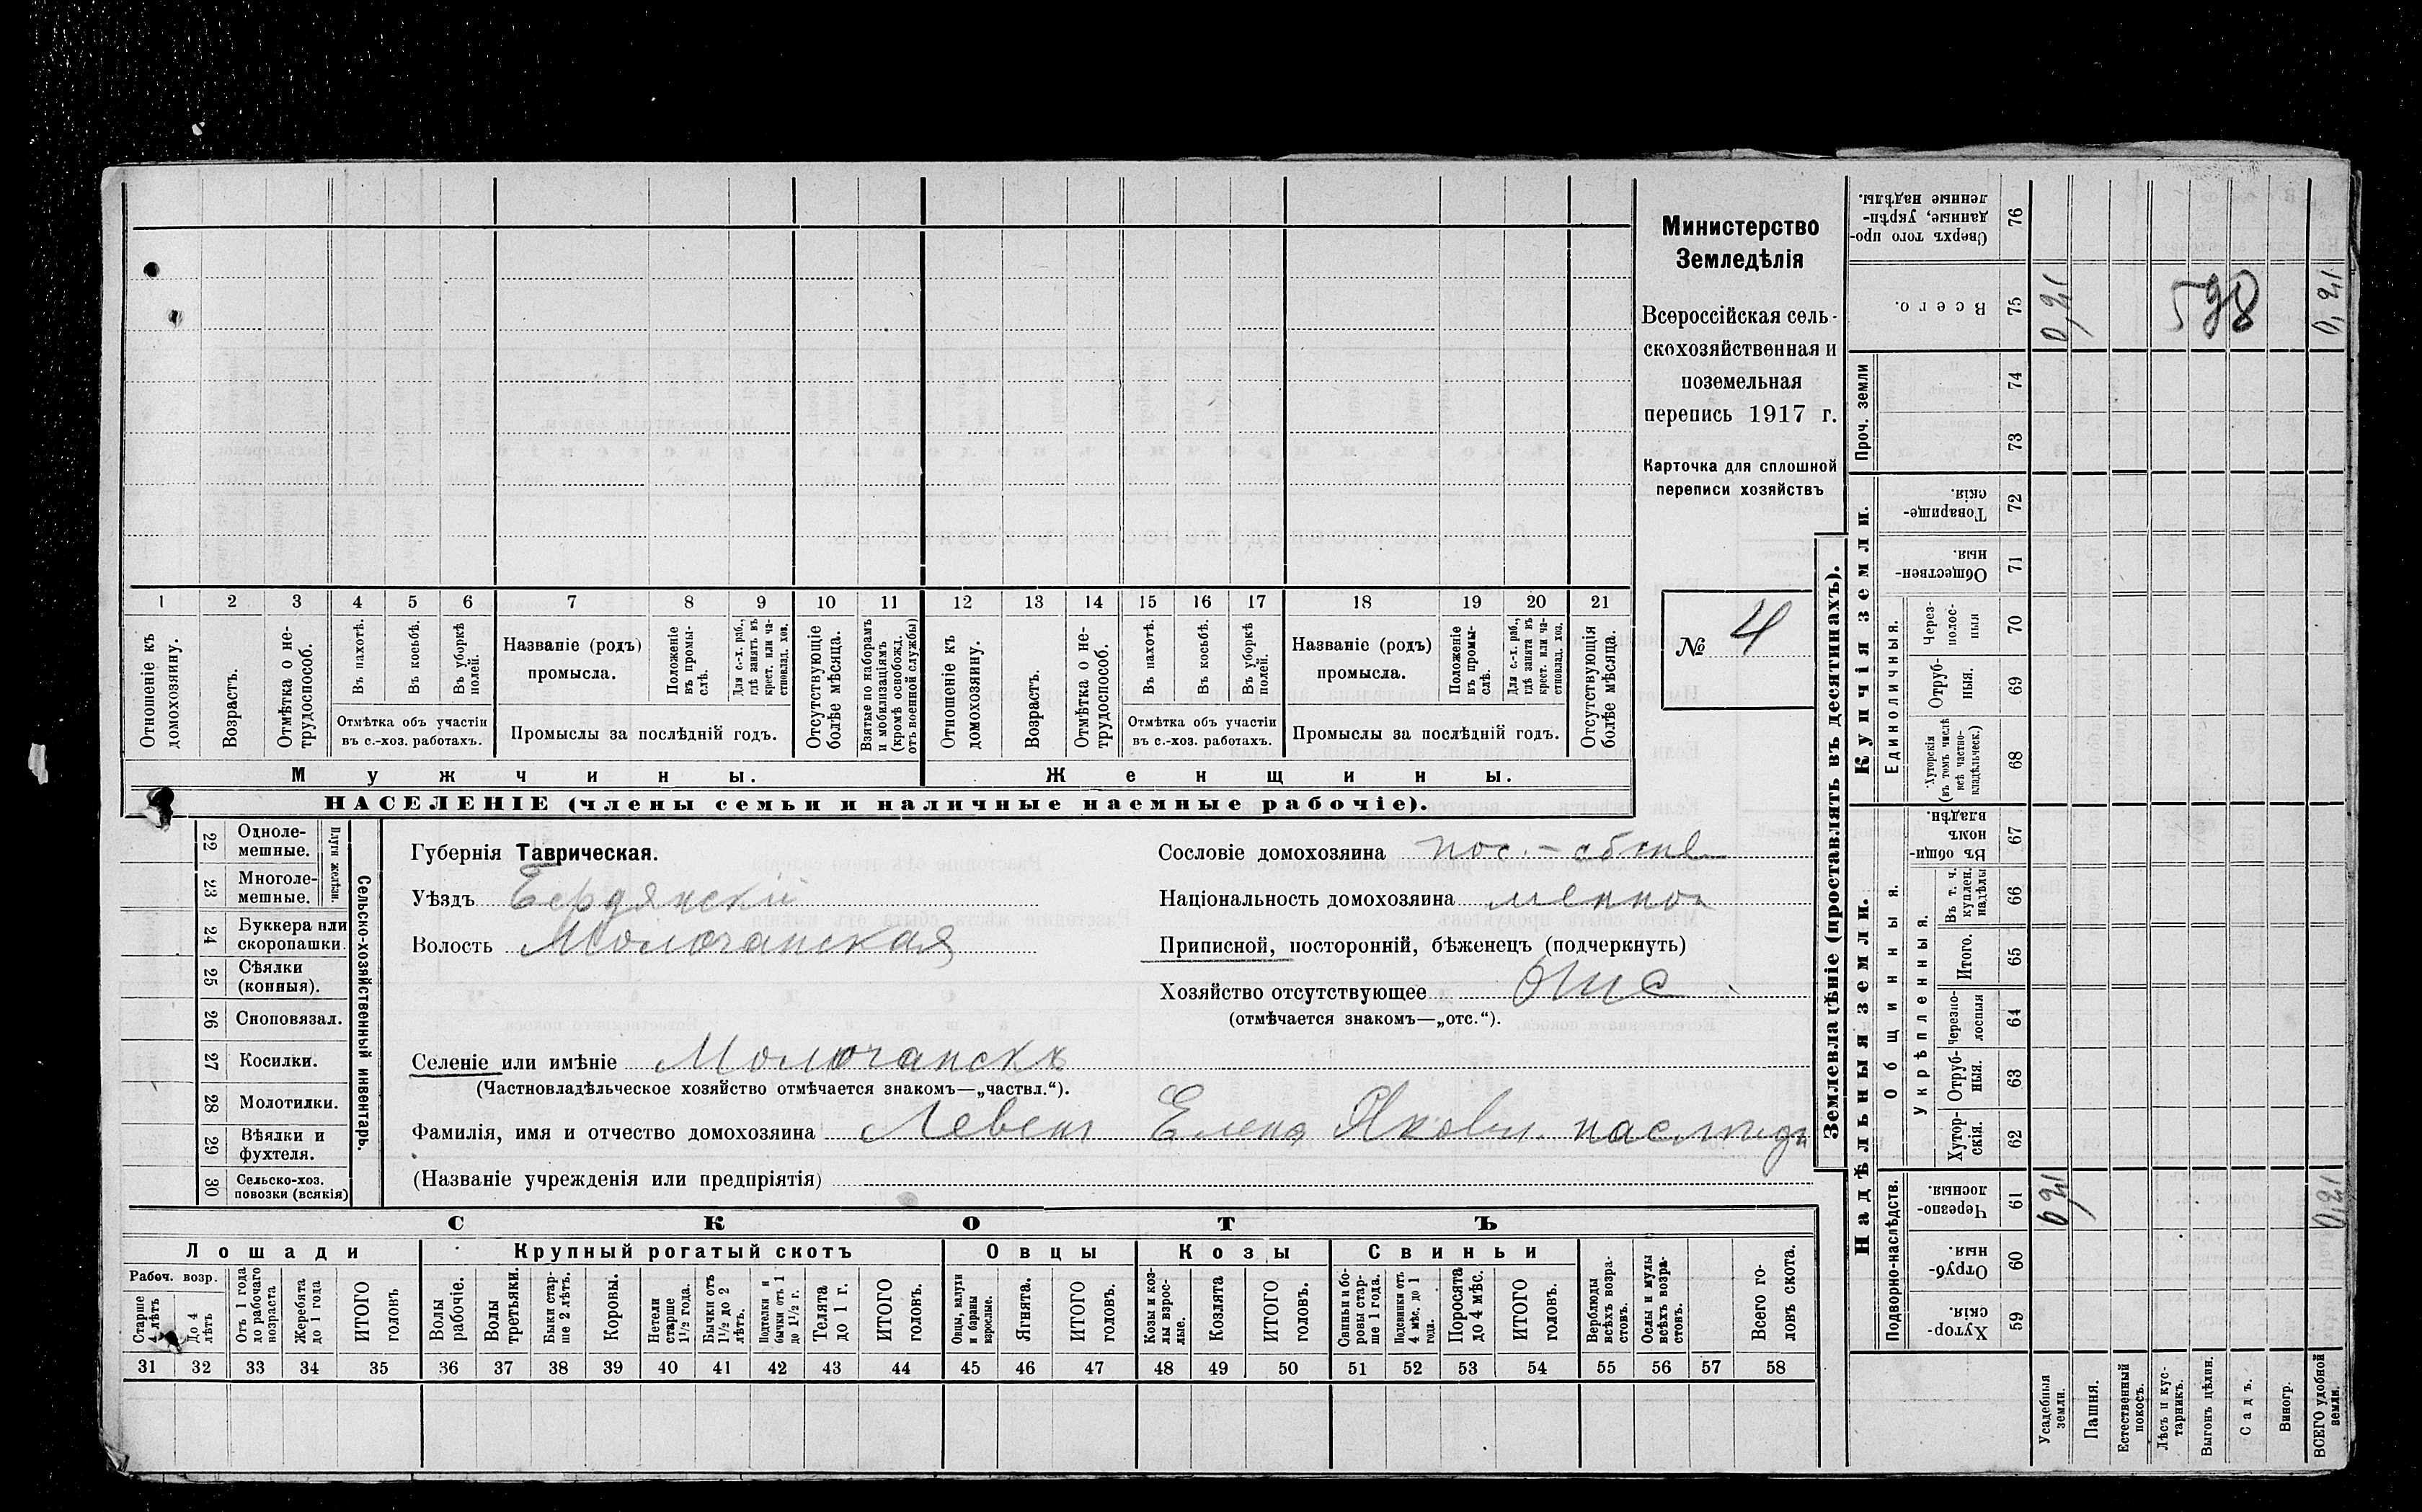 Министерство
Земледѣлія
Всероссійская сель-
скохозяйственная и
поземельная
перепись 1917 г.
Карточка для сплошной
переписи хозяйствъ
№ 4
1 2 3 4 5 6 7 8 9 10 11 12 13 14 15 16 17 18 19 20 21
Отношеніе къ домохозяину.
Возрастъ.
Отмѣтка о не-трудоспособ.
Въ пахотѣ.
Въ косьбѣ.
Въ уборкѣ полей.
Отмѣтка объ участіи
въ с.-хоз. работахъ.
Названіе (родъ)
промысла.
Положеніе въ промы-слѣ.
Для с.-х. раб., гдѣ занятъ въ крест. или ча-стновлад. хоз.
Промыслы за послѣдній годъ.
Отсутствующіе болѣе мѣсяца.
Взятые по наборамъ и мобилизаціямъ (кромѣ освобожд. отъ военной службы)
Отношеніе къ домохозяину.
Возрастъ.
Отмѣтка о не-трудоспособ.
Въ пахотѣ.
Въ косьбѣ.
Въ уборкѣ полей.
Отмѣтка объ участіи
въ с.-хоз. работахъ.
Названіе (родъ)
промысла.
Положеніе въ промы-слѣ.
Для с.-х. раб., гдѣ занята въ крест. или ча-стновлад. хоз.
Промыслы за послѣдній годъ.
Отсутствующія болѣе мѣсяца.
Мужчины.
Женщины.
НАСЕЛЕНІЕ (члены семьи и наличные наемные рабочіе).
22 Одноле-мешные.
23 Многоле-мешные.
Плуги желѣзн.
24 Буккера или скоропашки.
25 Сѣялки (конныя).
26 Сноповязал.
27 Косилки.
28 Молотилки.
29 Вѣялки и фухтеля.
30 Сельско-хоз. повозки (всякія)
Сельско-хозяйственный инвентарь.
Губернія Таврическая.
Уѣздъ Бердянскій
Волость Молочанская
Сословіе домохозяина пос.-обств
Національность домохозяина менно
Приписной, посторонній, бѣженецъ (подчеркнуть)
Хозяйство отсутствующее отс
(отмѣчается знакомъ—„отс.“).
Селеніе или имѣніе Молочанскъ
(Частновладѣльческое хозяйство отмѣчается знакомъ—„частвл.“).
Фамилія, имя и отчество домохозяина Левен Елена Яковл. наслѣдн
(Названіе учрежденія или предпріятія)
СКОТЪ
Лошади
Крупный рогатый скотъ
Овцы
Козы
Свиньи
Рабоч. возр.
Старше 4 лѣтъ
До 4 лѣтъ
Отъ 1 года до рабочаго возраста
Жеребята до 1 года
ИТОГО головъ
Волы рабочіе.
Волы третьяки.
Быки стар-ше 2 лѣтъ.
Коровы.
Нетели старше 1½ года.
Бычки отъ 1½ до 2 лѣтъ.
Подтелки и бычки отъ 1 до 1½ г.
Телята до 1 г.
ИТОГО головъ.
Овцы, валухи и бараны взрослые.
Ягнята.
ИТОГО головъ.
Козы и коз-лы взрос-лые.
Козлята
ИТОГО головъ.
Свиньи и бо-ровы стар-ше 1 года.
Подсвинки отъ 4 мѣс. до 1 года.
Поросята до 4 мѣс.
ИТОГО головъ.
Верблюды всѣхъ возра-стовъ.
Ослы и мулы всѣхъ возра-стовъ.
Всего го-ловъ скота.
31 32 33 34 35 36 37 38 39 40 41 42 43 44 45 46 47 48 49 50 51 52 53 54 55 56 57 58
Землевладѣніе (проставлять въ десятинахъ).
Надѣльныя земли.
Купчія земли.
Проч. земли
Подворно-наслѣдств.
Общинныя.
Укрѣпленныя.
Единоличныя.
Сверхъ того про-данные, укрѣп-ленные надѣлы. 76
Всего. 75 0,21 598 0,21
74
73
Товарище-скія. 72
Обществен-ныя. 71
Через-полос-ныя 70
Отруб-ныя. 69
Хуторскія (въ томъ числѣ всѣ частно-владѣльческ.) 68
Въ общин-номъ владѣн. 67
Въ т. ч. куплен. надѣлы 66
Итого. 65
Черезпо-лосныя 64
Отруб-ныя. 63
Хутор-скія. 62
Черезпо-лосныя. 61 0,21 0,21
Отруб-ныя. 60
Хутор-скія. 59
Усадебныя земли.
Пашня.
Естественный покосъ.
Лѣсъ и кус-тарникъ.
Выгонъ цѣлин.
Садъ.
Виногр.
ВСЕГО удобной земли.